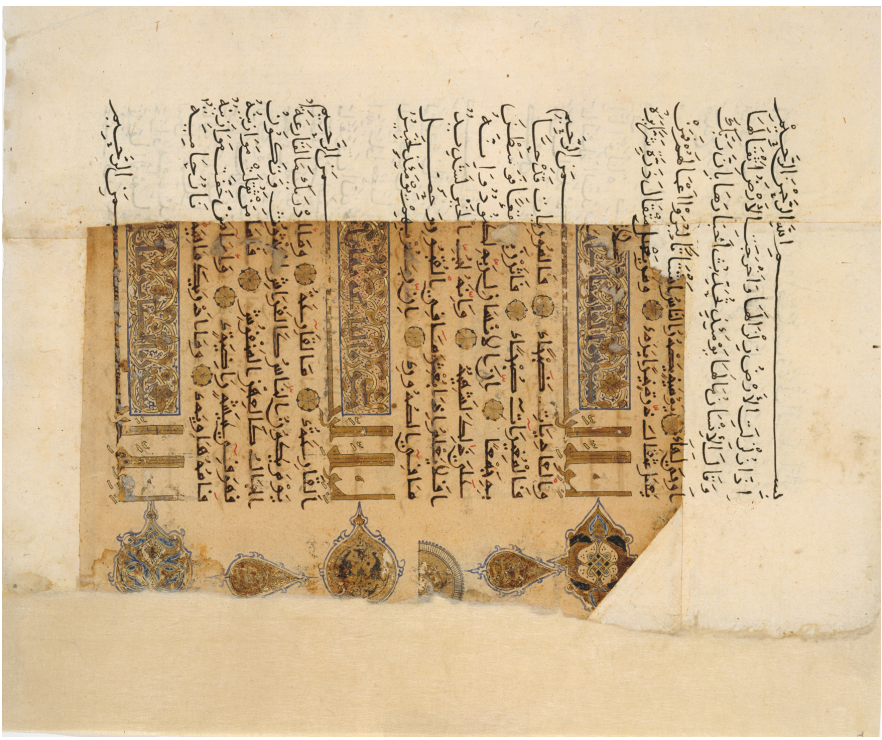 بسم الله الرحمن الرحيم
اذا زلزلت الارض زلزالها واخرجت الارض اثقالها
وقال الانسان ما لها يومئذ تحدث اخبارها بان ربك
اوحى لها يومئذ يصدر الناس اشتاتا ليروا اعمالهم فمن
يعمل مثقال ذرة خيرا يره ومن يعمل مثقال ذرة شرا يره
بسم الله الرحمن الرحيم
والعاديات ضبحا فالموريات قدحا
فالمغيرات صبحا فاثرن به نقعا فوسطن
به جمعا ان الانسان لربه لكنود وانه
على ذلك لشهيد وانه لحب الخير لشديد
افلا يعلم اذا بعثر ما في القبور وحصل
ما في الصدور ان ربهم بهم يومئذ لخبير
بسم الله الرحمن الرحيم
القارعة ما القارعة وما ادريك ما القارعة
يوم يكون الناس كالفراش المبثوث وتكون
الجبال كالعهن المنفوش فاما من ثقلت موازينه
فهو في عيشة راضية واما من خفت موازينه
فامه هاوية وما ادريك ما هيه نار حامية
بسم الله الرحمن الرحيم